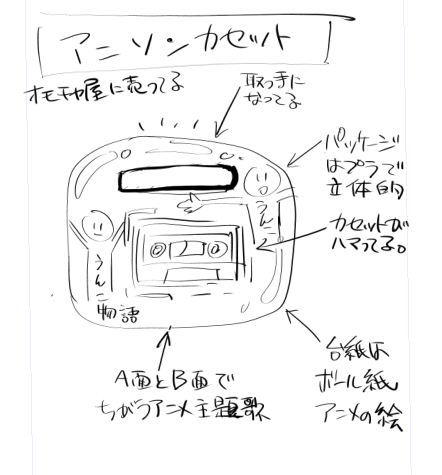 アニソンカセット
オモチャ屋に売ってる
取っ手に
なってる
パッケージ
はプラで
立体的
カセットが
ハマってる。
うんこ
うんこ
物語
A面とB面で
ちがうアニメ主題歌
台紙は
ボール紙
アニメの絵